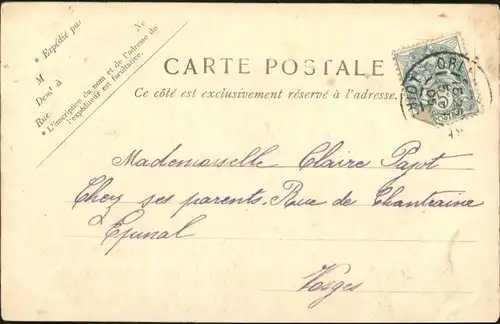 * Expédié par
M
Demt à
Rue No
* L'inscription du nom et de l'adresse de
l'expéditeur est facultative.
CARTE POSTALE
Ce côté est exclusivement réservé à l'adresse.
Mademoiselle Claire Pajot
Chez ses parents. Rue de Chantraine
à Epinal
Vosges